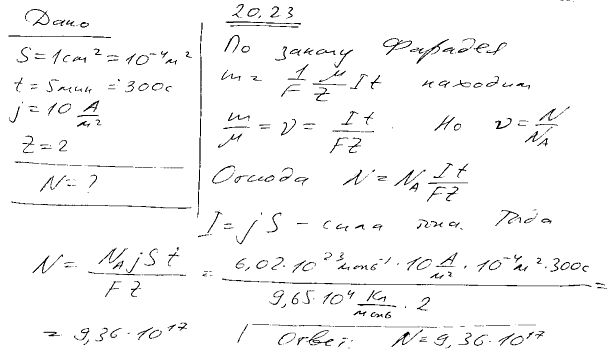 20.23
Дано
S = 1 cm² = 10⁻⁴ м²
t = 5 мин = 300 с
j = 10 А/м²
Z = 2
N = ?
По закону Фарадея
m = 1/F μ/Z It находим
m/μ = ν = It/FZ. Но ν = N/N_A
Отсюда N = N_A It/FZ
I = jS – сила тока. Тогда
N = N_A jSt / FZ = 6,02·10²³ моль⁻¹ · 10 А/м² · 10⁻⁴ м² · 300 с / 9,65·10⁴ Кл/моль · 2 =
= 9,36·10¹⁷
Ответ: N = 9,36·10¹⁷